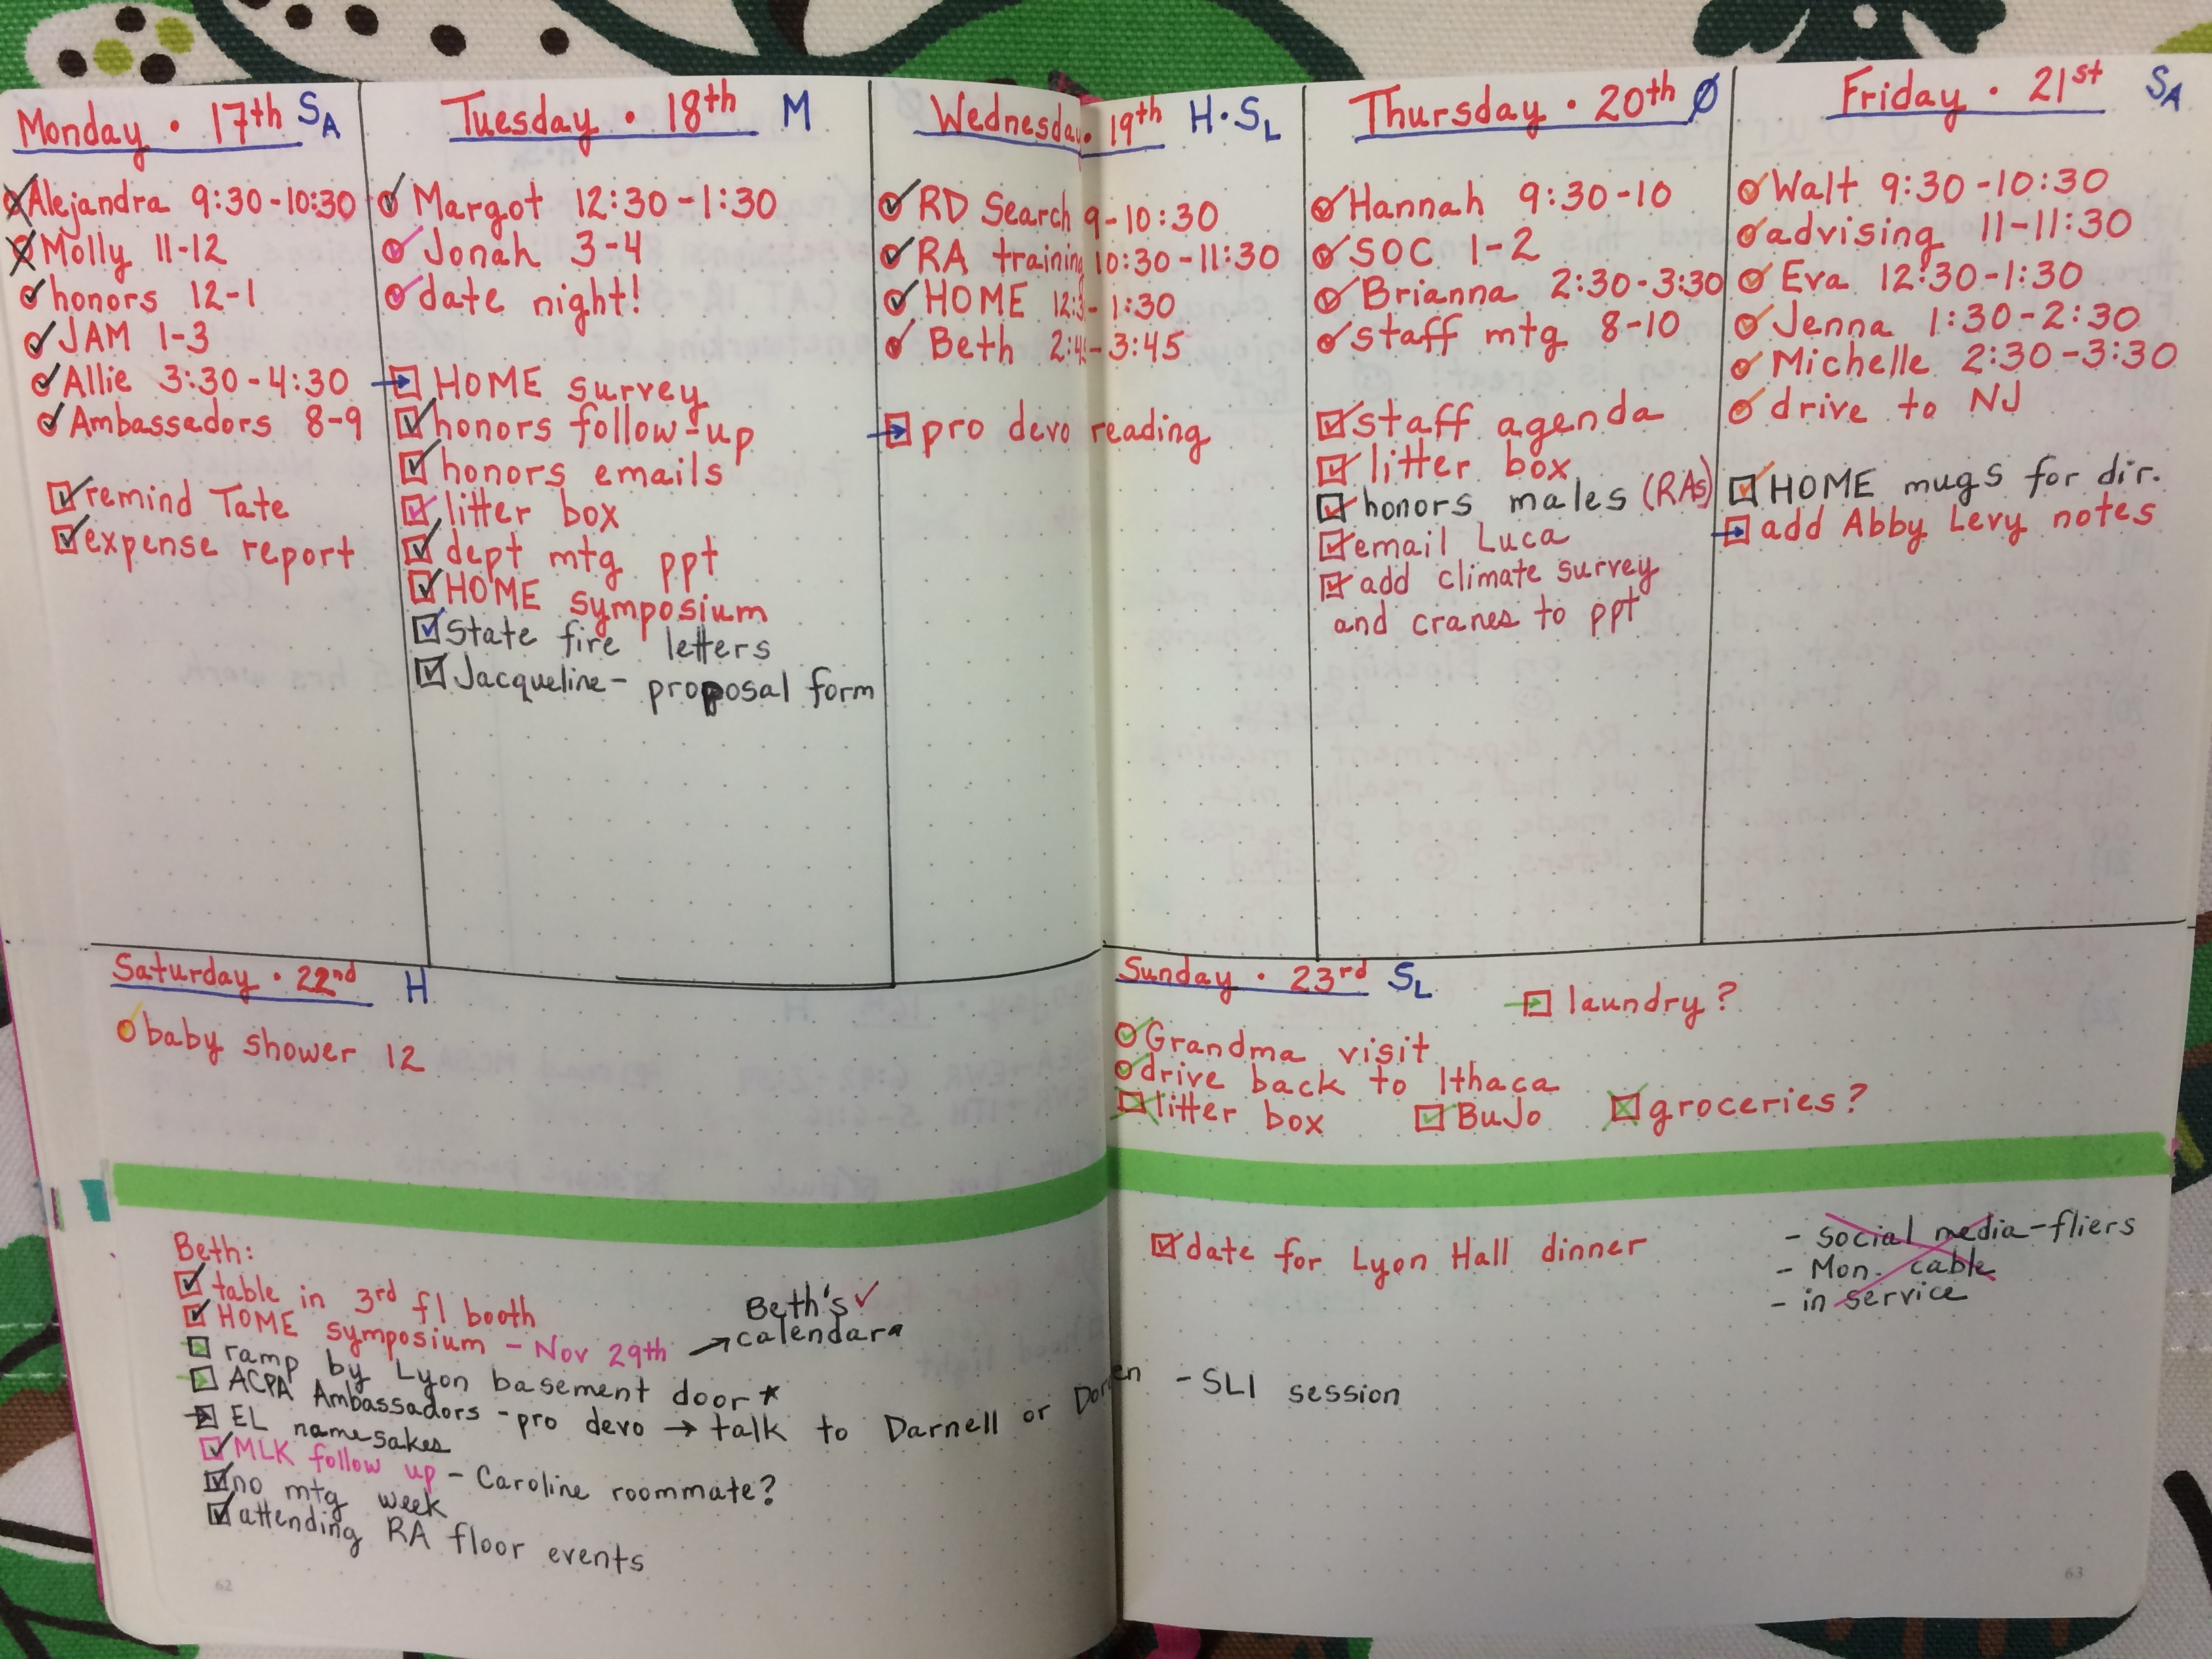 Monday • 17th SA
Alejandra 9:30-10:30
Molly 11-12
honors 12-1
JAM 1-3
Allie 3:30-4:30
Ambassadors 8-9
remind Tate
expense report
Tuesday • 18th M
Margot 12:30-1:30
Jonah 3-4
date night!
HOME survey
honors follow-up
honors emails
litter box
dept mtg ppt
HOME symposium
State fire letters
Jacqueline- proposal form
Wednesday • 19th H•SL
RD Search 9-10:30
RA training 10:30-11:30
HOME 12:3-1:30
Beth 2:45-3:45
pro devo reading
Thursday • 20th Ø
Hannah 9:30-10
SOC 1-2
Brianna 2:30-3:30
staff mtg 8-10
staff agenda
litter box
honors males (RAs)
email Luca
add climate survey
and cranes to ppt
Friday • 21st SA
Walt 9:30-10:30
advising 11-11:30
Eva 12:30-1:30
Jenna 1:30-2:30
Michelle 2:30-3:30
drive to NJ
HOME mugs for dir.
add Abby Levy notes
Saturday • 22nd H
baby shower 12
Sunday • 23rd SL
laundry?
Grandma visit
drive back to Ithaca
litter box BuJo groceries?
Beth:
table in 3rd fl booth
HOME symposium - Nov 29th → Beth's
calendar
ramp by Lyon basement door *
ACPA Ambassadors - pro devo → talk to Darnell or Dorien - SLI session
EL namesakes
MLK follow up - Caroline roommate?
no mtg week
attending RA floor events
date for Lyon Hall dinner
- social media-fliers
- Mon. cable
- in service
62
63